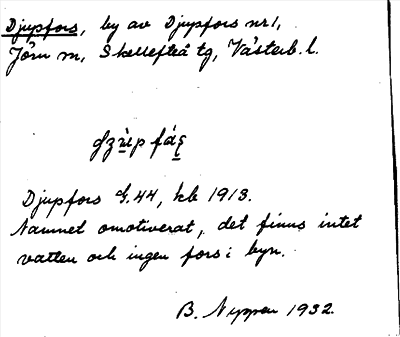 Djupfors, by av Djupfors nr 1,
Jörn sn, Skellefteå tg, Västerb. l.
Djupfors G. 44, kb 1913.
Namnet omotiverat, det finns intet
vatten och ingen fors i byn.
B. Nyman 1932.